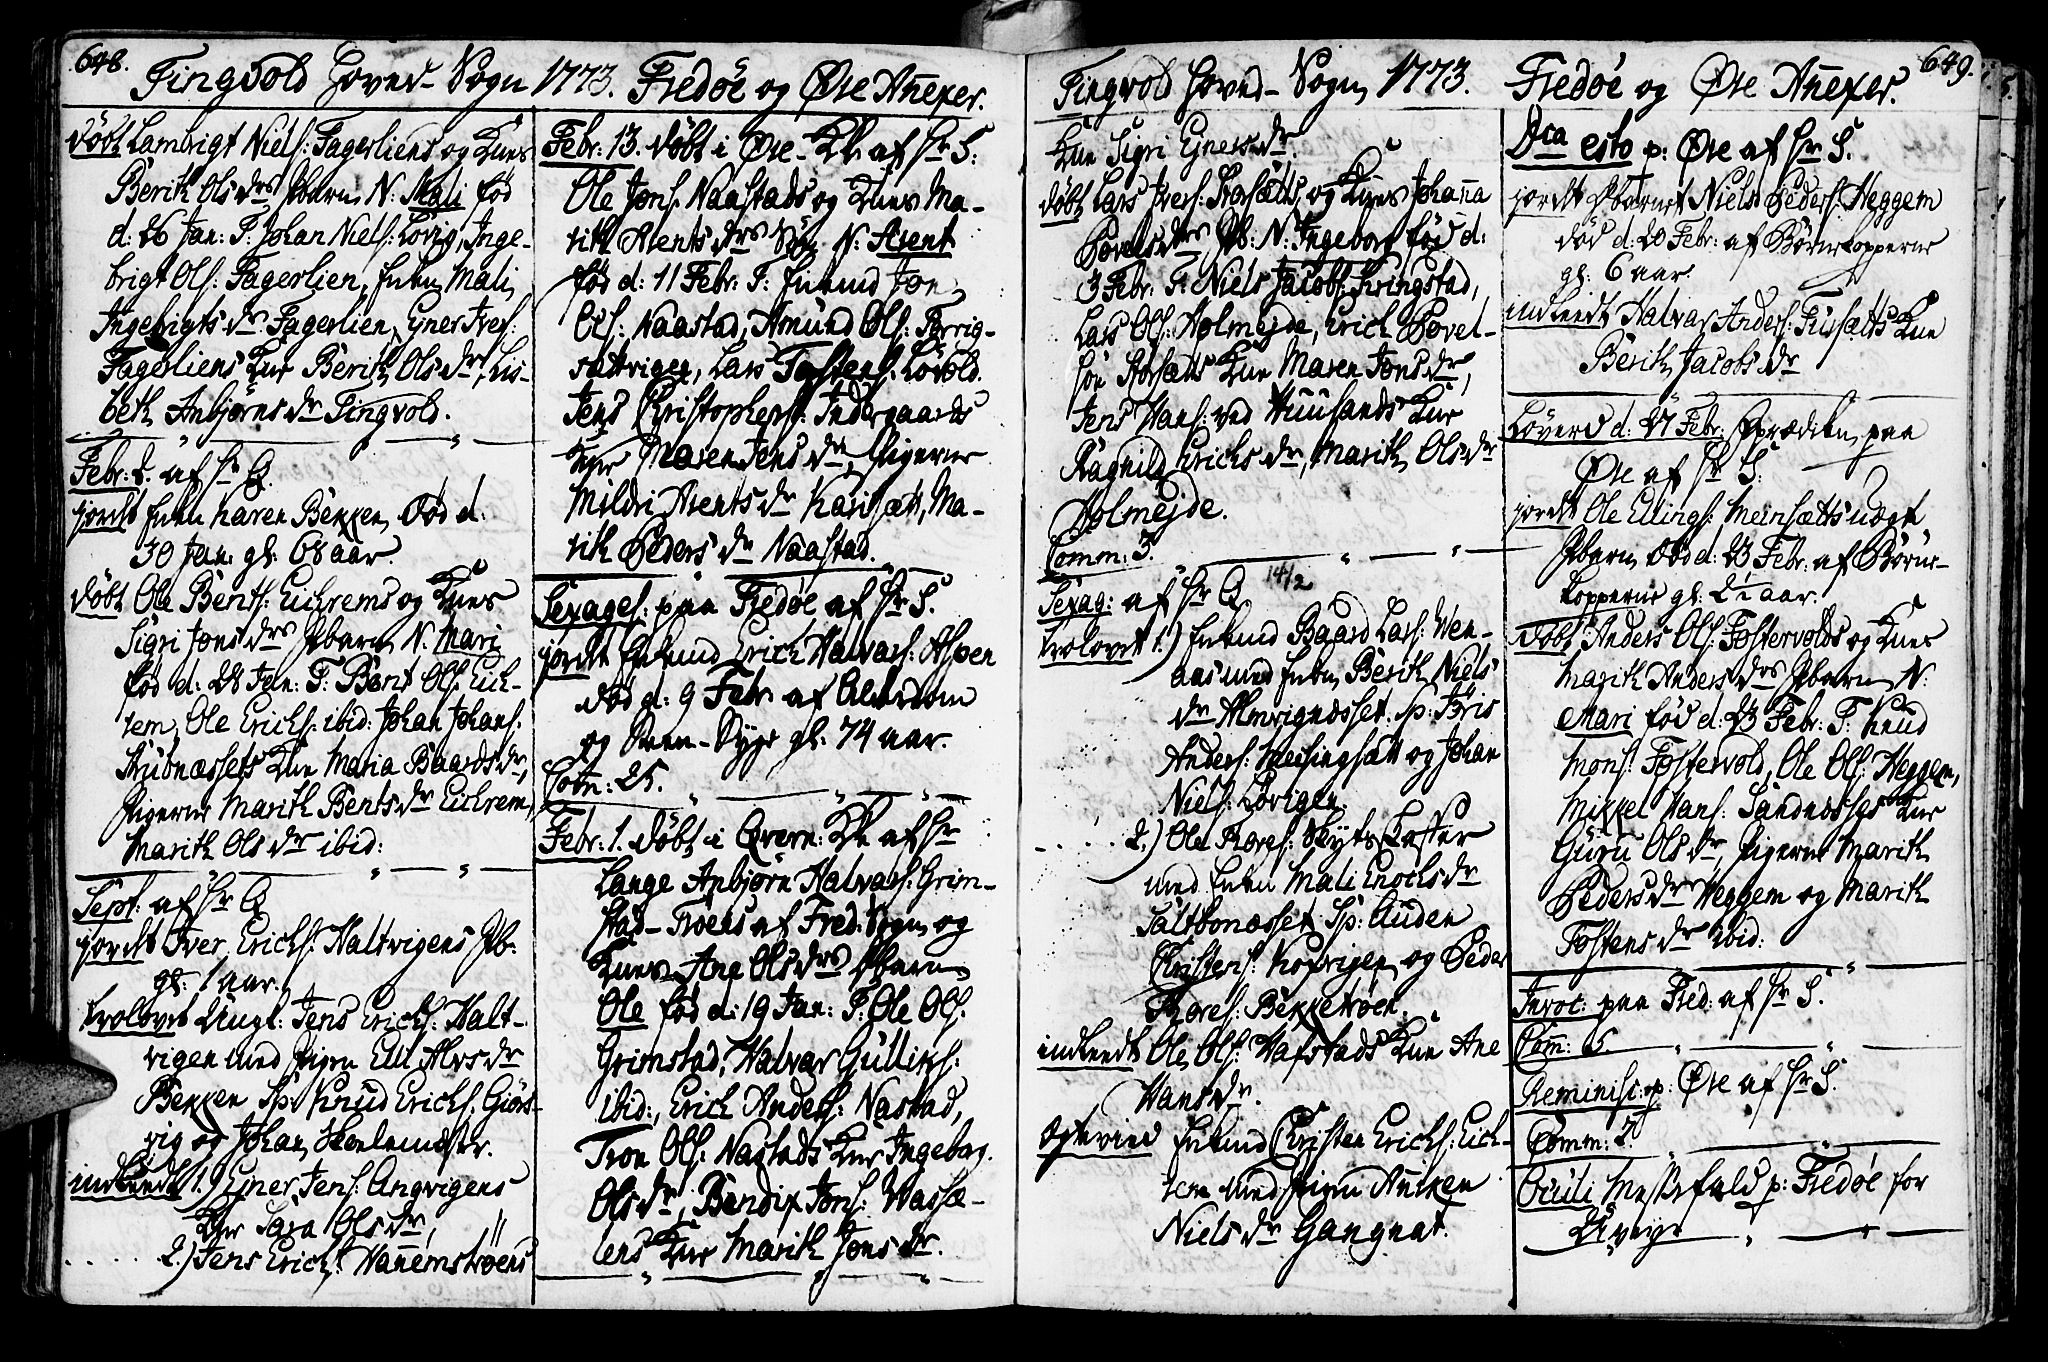 648.
Tingvold Hoved-Sogn 1773.
døbt Lambrigt Niels: Fagerliens og Knes
Berith Olsdrs Pbarn N: Mali fød
d: 26 Jan: F: Johan Niels: Lovig, Inge-
brigt Ols: Fagerlien, Enken Mali
Ingebrigts dr Fagerlien, Eyner Ivers:
Fagerliens Kne Berith Olsdr, Lis-
beth Anbjørns dr Tingvold.
Febr: 2. af Hr Q.
jordet Enken Karen Bekken død d.
30 Jan: gl: 68 aar.
døbt Ole Bents: Eichrems og Knes
Sigri Jons drs Pbarn N. Mari
fød d: 28 Jan: F: Bent Ols: Eich-
rem, Ole Erichs: ibid: Johan Johans:
Kne Maria Baardsdr,
Pigerne Marith Bentsdr Eichrem,
Marith Olsdr ibid:
Sept: af Hr Q
jordet Iver Erichs: Haltvigens Pb:
gl: 1 aar.
trolovet Ungk: Jens Erichs: Halt-
vigen med Pigen Eli Alvsdr
Bekken Sp: Knud Erichs: Giørs-
vig og Johan Skolemester.
indleedt 1.) Eyner Jens: Angvigens
Kne Sara Olsdr,
2.) Jens Erichs: Hanemstrøens
Fredøe og Øre Anexer.
Febr: 13. døbt i Øre-Kk af Hr S:
Ole Jons: Naastads og Knes Ma-
rith Arents drs Søn N: Arent
fød d: 11 Febr: F: Enkmd Jon
Ols: Naastad, Amund Ols:
Lars Tostens: Løvold.
Jens Christophers: Indergaards
Kne Maren Jens dr, Pigerne
Mildri Arents dr Karisætt, Ma-
rith Peders dr Naastad.
Sexages: paa Fredøe af Hr S.
jordet Enkmd Erich Halvars: Aspen
død d: 9 Febr af Alderdom
og gl: 74 aar.
Com: 25.
Febr: 1. døbt i Qvern: Kk af Hr
Lange Anbjørn Halvars: Grim-
stad-Troens af Fred: Sogn og
Knes Ane Olsdrs Pbarn
Ole fød d: 19 Jan: F: Ole Ols:
Grimstad, Halvar Gulliks:
ibid:, Erich Anders: Nastad,
Tron Ols: Nastads Kne Ingebor
Olsdr, Bendix Jons: Vassæ-
tens Kne Marith Jons dr.
Tingvold Hoved-Sogn 1773.
Kne Sigri Eynersdr.
døbt Lars Ivers: Storsætts og Knes Johanna
Povelsdrs Pb: N: Ingebor fød d:
3 Febr: F: Niels Jacobs: Kringstad,
Lars Ols: Holmejde, Erich Povel-
søn Storsætts Kne Maren Jonsdr,
Jens Hans: ved Huusands Kne
Ragnild Erichs dr, Marith Olsdr
Holmejde.
Comm: 3.
Sexag: af Hr Q 14/2
trolovet 1.) Enkmd Baard Lars: Wen-
aas med Enken Berith Niels
dr Almvignæsset. Sp:
Anders: Meisingsætt og Johan
Niels: Lovigen.
2.) Ole Tores: Skytskaffer
med Enken Mali Enochsdr
Saltbonæsset Sp: Auden
Christens: og Peder
Thores: Bekkerøen.
indleedt Ole Ols: Hafstads Kne Ane
Hansdr.
Egtevied Enkmd Christen Erichs: Eich-
rem med Pigen Aniken
Niels dr Gangnat.
649.
Fredøe og Øre Anexer.
Dca esto p: Øre af Hr S.
jordet Pbarnet Niels Peders: Heggem
død d: 20 Febr: af Børnekopperne
gl: 6 aar.
indleedt Halvar Anders: Fursætts Kne
Berith Jacobs dr
Løverd: 27 Febr: Prædiken paa
Øre af Hr S:
jordet Ole Ellings: Meinsætts uægt
Pbarn død d: 23 Febr: af Børne-
kopperne gl: 2½ aar.
døbt Anders Ols: Fostervolds og Knes
Marith Anders drs Pbarn N:
Mari fød d: 23 Febr: F: Knud
Mons: Fostervold, Ole Ols: Heggem,
Mikkel Hans: Sandnæsses Kne
Guru Olsdr, Pigerne Marith
Pedersdr Heggem og Marith
Tostens dr ibid:
Invoc: paa Fred: af Hr S.
Com: 5.
Reminisc: p: Øre af Hr S.
Comm: 7.
Oculi Messefald p: Fredøe for
Uveyr